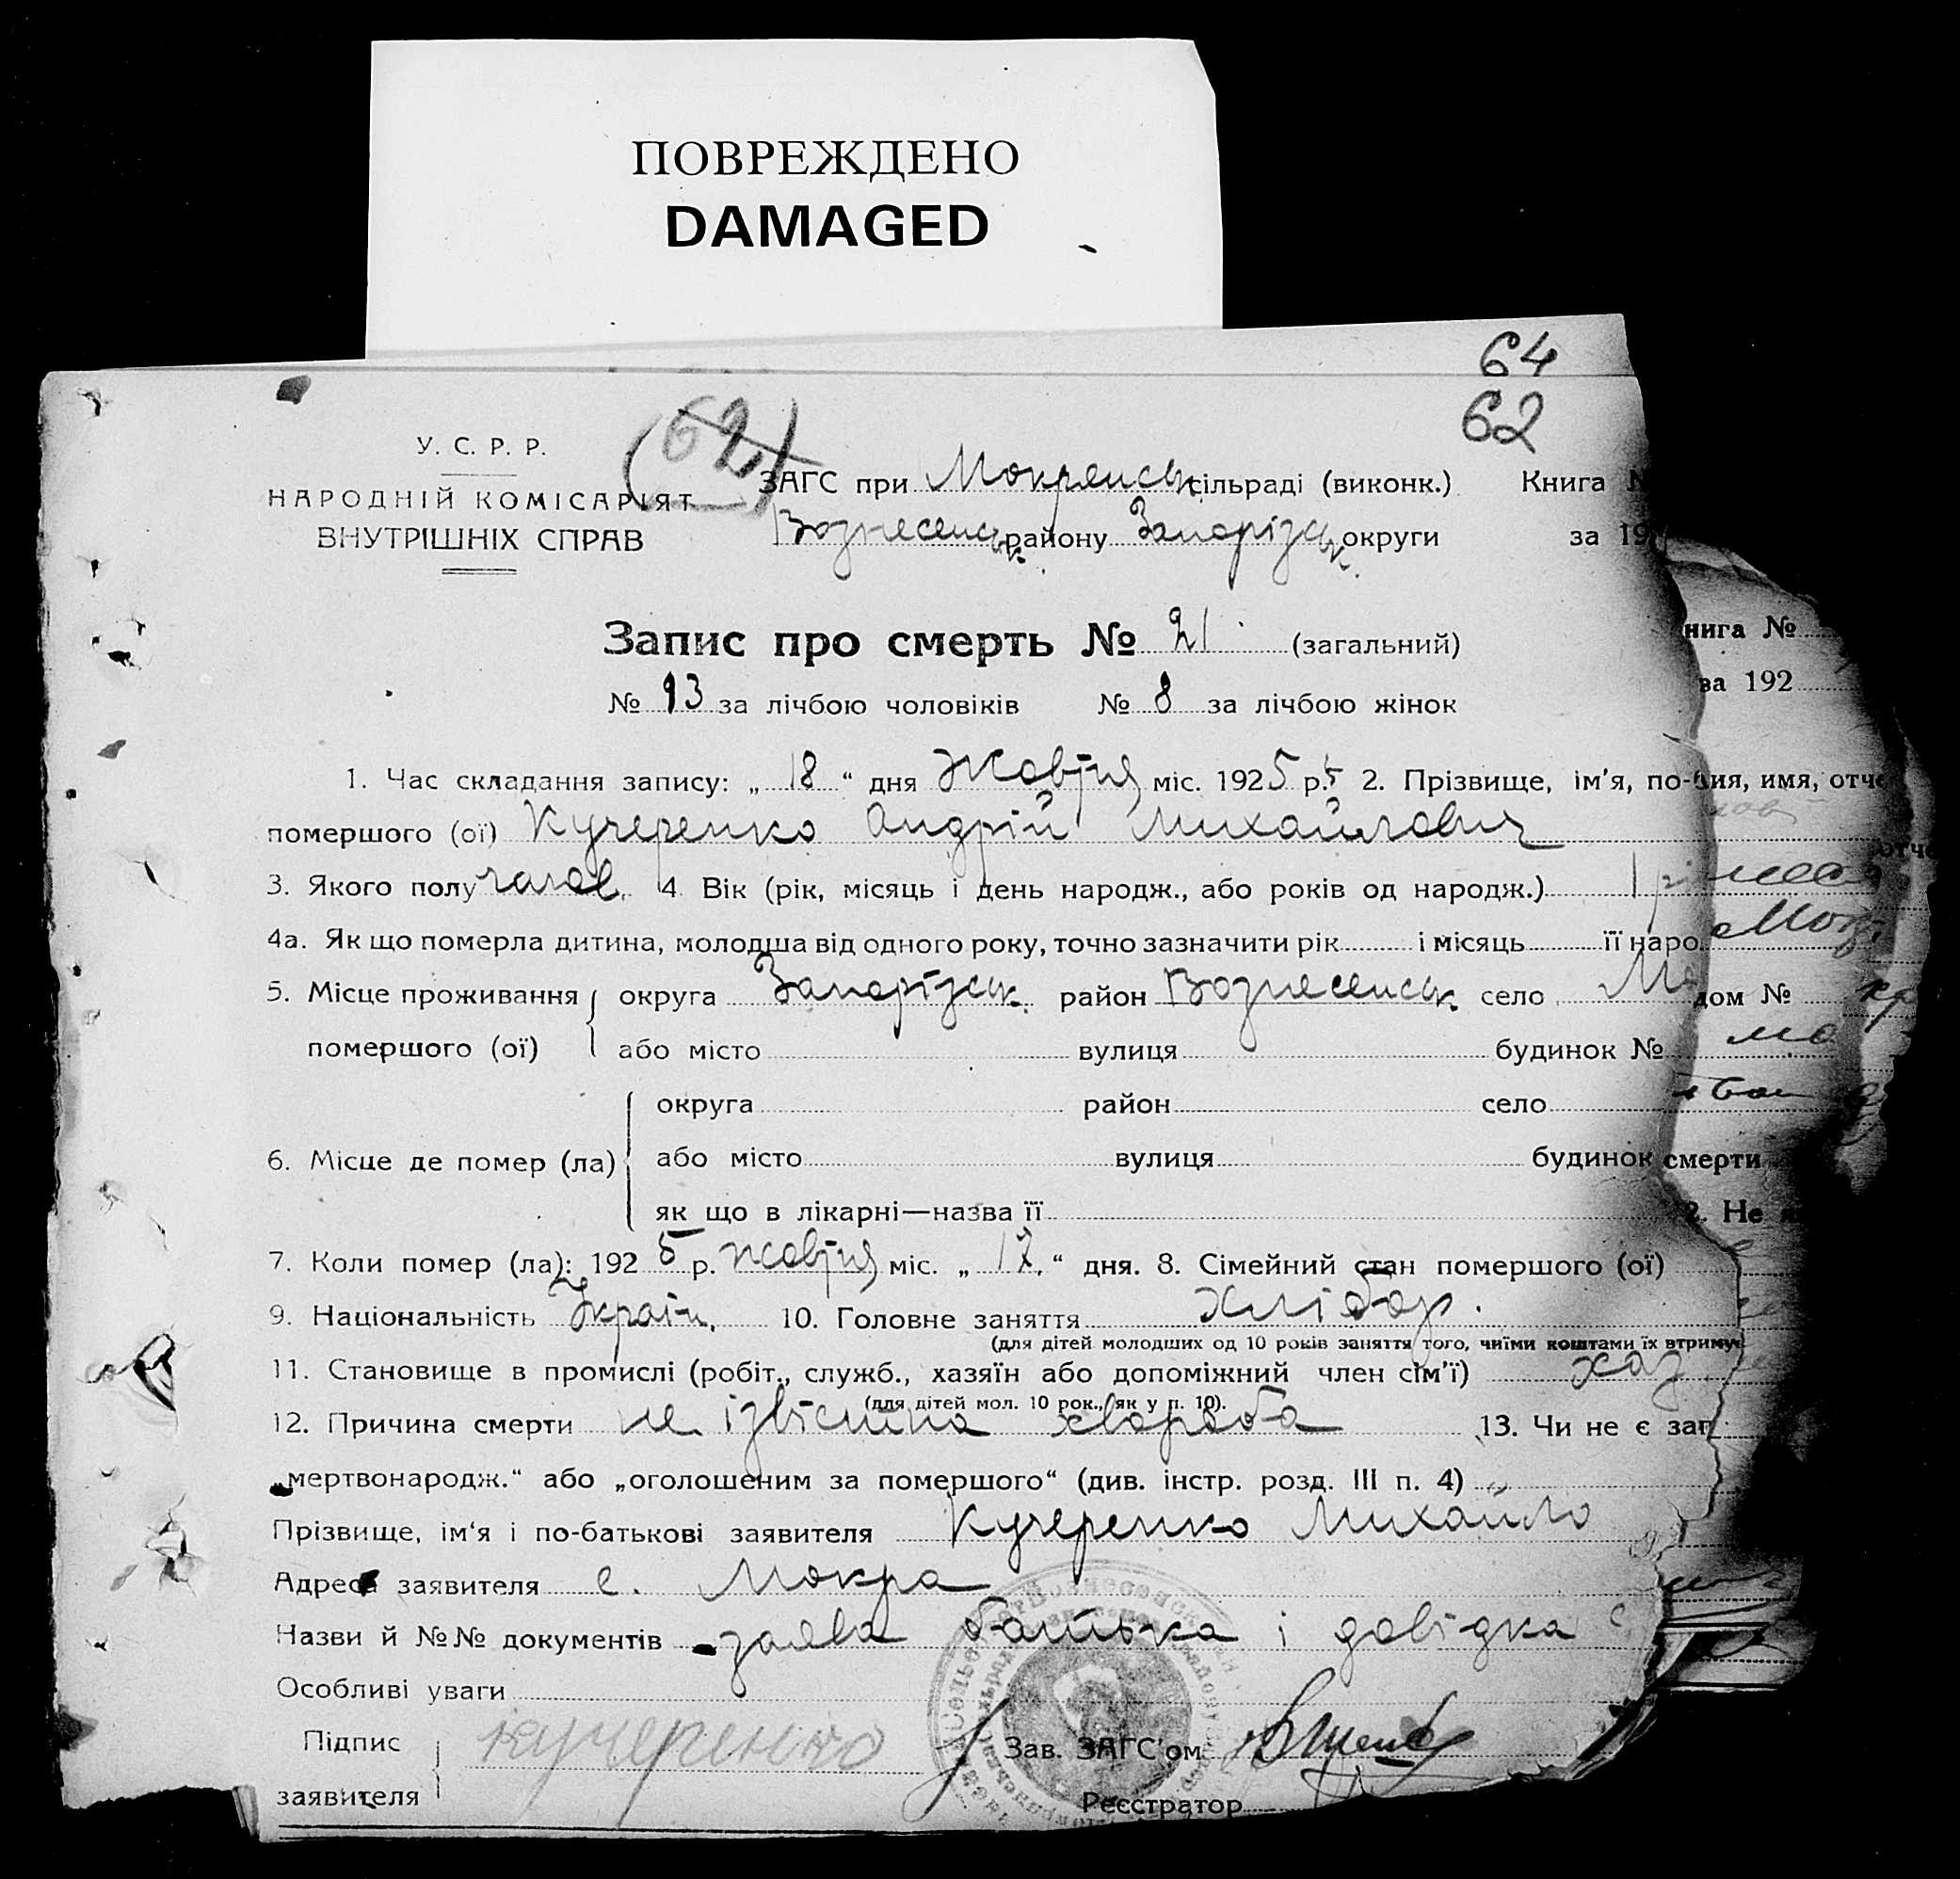 ПОВРЕЖДЕНО
DAMAGED
64
62
(62)
У. С. Р. Р.
НАРОДНІЙ КОМІСАРІЯТ
ВНУТРІШНІХ СПРАВ
ЗАГС при Мокрянськ сільраді (виконк.) Книга №
Вознесенськ. району Запорізьк. округи за 19
Запис про смерть № 21 (загальний)
№ 13 за лічбою чоловіків № 8 за лічбою жінок
нига №
ва 192
1. Час складання запису: „ 18 “ дня Жовтня міс. 1925 р. 2. Прізвище, ім'я, по-
ия, имя, отч
помершого (ої) Кучеренко Андрій Михайлович
3. Якого полу чолов. 4 Вік (рік, місяць і день народж., або років од народж.) 1
4а. Як що померла дитина, молодша від одного року, точно зазначити рік і місяць її наро
5. Місце проживання помершого (ої) округа Запорізьк. район Вознесенськ село М
дом №
або місто вулиця будинок №
6. Місце де помер (ла) округа район село
або місто вулиця будинок
смерти
як що в лікарні—назва її
2. Не
7. Коли помер (ла): 1925 р. жовтня міс. „ 17. “ дня. 8. Сімейний стан помершого (ої)
9. Національність Україн. 10. Головне заняття хлібор.
(для дітей молодших од 10 років заняття того, чиїми коштами їх втриму
11. Становище в промислі (робіт., служб., хазяїн або допоміжний член сім'ї) хаз
(для дітей мол. 10 рок., як у п. 10).
12. Причина смерти не ізвістна хвороба 13. Чи не є зап
„мертвонародж.“ або „оголошеним за помершого“ (див. інстр. розд. III п. 4)
Прізвище, ім'я і по-батькові заявителя Кучеренко Михайло
Адреса заявителя с. Мокра
Назви й №№ документів заява батька і довідка с
Особливі уваги
Підпис заявителя Кучеренко
Зав. ЗАГС'ом
Реєстратор